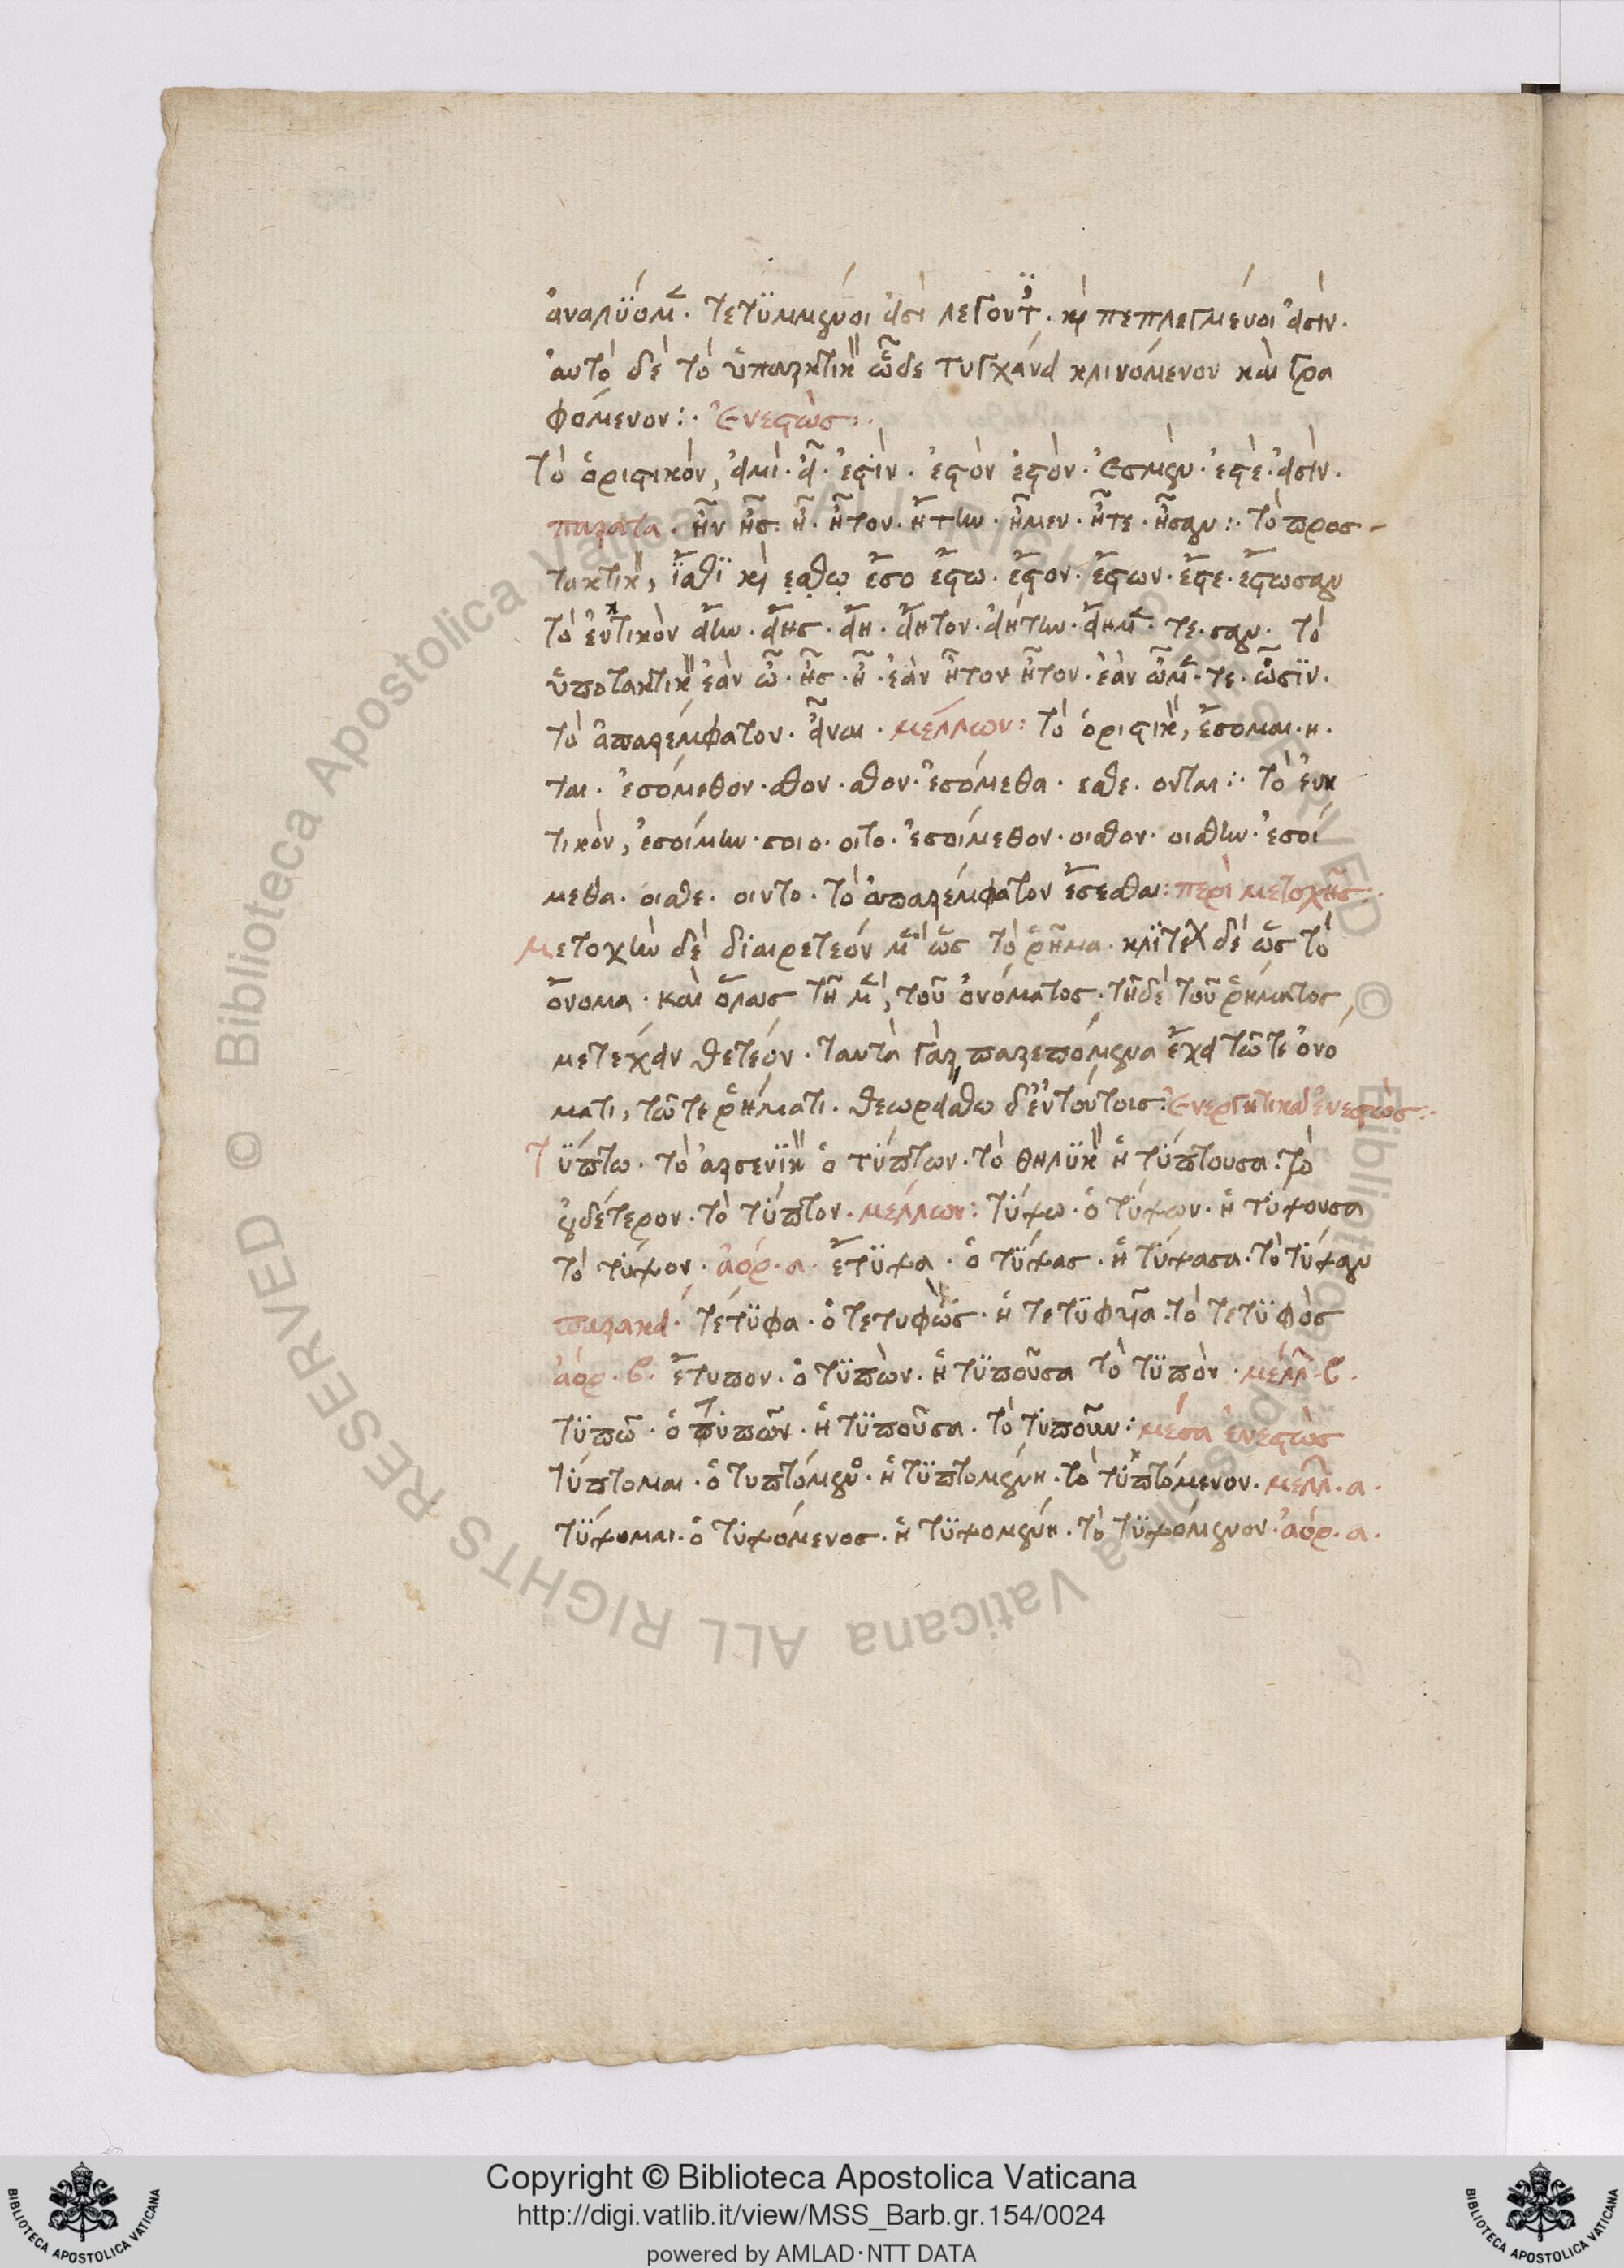 ἀναλύομ. τετϋμμένοι εἰσὶ λέγοντ. καὶ πεπλεγμένοι εἰσίν.
ἀυτὸ δὲ τὸ ὑπαρκτικ ὧδε τυγχάνει κλινόμενον καὶ γρα
φόμενον:· Ἐνεστὼς:·
Τὸ ὁριστικόν, εἰμὶ. εἶ. ἐστὶν. ἐστὸν ἐστὸν. ἐσμὲν. ἐστὲ. εἰσὶν.
παρατα. ἦν ἦς. ἦ. ἦτον. ἤτην. ἦμεν. ἦτε. ἦσαν:· Τὸ προσ-
τακτικ, ἴσθϊ καὶ ἔσθω ἔσο ἔστω. ἔστον. ἔστων. ἔστε. ἔστωσαν
Τὸ ἐυκτικὸν εἴην. εἴης. εἴη. εἴητον. εἰήτην. εἴημ. τε. σαν. τὸ
ὑποτακτικ ἐὰν ὦ. ἦς. ἦ. ἐὰν ἦτον ἦτον. ἐὰν ὦμ. τε. ὦσϊν.
Τὸ ἀπαρέμφατον. εἶναι. μέλλων: Τὸ ὁριστικ, ἔσομαι. η.
ται. ἐσόμεθον. σθον. σθον. ἐσόμεθα. εσθε. ονται:· τὸ ἐυκ
τικὸν, ἐσοίμην. σοιο. οιτο. ἐσοίμεθον. οισθον. οισθην. ἐσοί
μεθα. οισθε. οιντο. τὸ ἀπαρέμφατον ἔσεσθαι: περὶ μετοχῆς:·
Μετοχὴν δὲ διαιρετέον μ ὡς τὸ ῥῆμα. κλϊτέ δὲ ὡς τὸ
ὄνομα. καὶ ὅλως τῆ μ, τοῦ ὀνόματος. τῆ δὲ τοῦ ῥήματος,
μετέχειν θετέον. ταυτὰ γὰρ παρεπόμενα ἔχει τῶ τε ὀνό
ματι, τῶ τε ῥήματι. θεωρείσθω δ' ἐν τούτοις: Ἐνεργητικὰ ἐνεστὼς:·
Τύπτω. τὸ ἀρσενϊκ ὁ τύπτων. τὸ θηλϋκ ἡ τύπτουσα. τὸ
οὐδέτερον. τὸ τύπτον. μέλλων: Τύψω. ὁ τύψων. ἡ τύψουσα
τὸ τύψον. ἀόρ. α. ἔτϋψα. ὁ τύψας. ἡ τύψασα. τὸ τύψαν
παρακεί. τέτϋφα. ὁ τετυφὼς. ἡ τετϋφυῖα. τὸ τετϋφὸς
ἀόρ. β. ἔτυπον. ὁ τϋπὼν. ἡ τϋποῦσα τὸ τϋπὸν. μέλλ. β.
τϋπῶ. ὁ τυπῶν. ἡ τϋποῦσα. τὸ τϋποῦν: μέσα ἐνεστὼς
τύπτομαι. ὁ τυπτόμενος. ἡ τϋπτομένη. τὸ τυπτόμενον. μελλ. α.
τύψομαι. ὁ τυψόμενος. ἡ τϋψομένη. τὸ τϋψόμενον. ἀόρ. α.
Copyright © Biblioteca Apostolica Vaticana
http://digi.vatlib.it/view/MSS_Barb.gr.154/0024
powered by AMLAD·NTT DATA